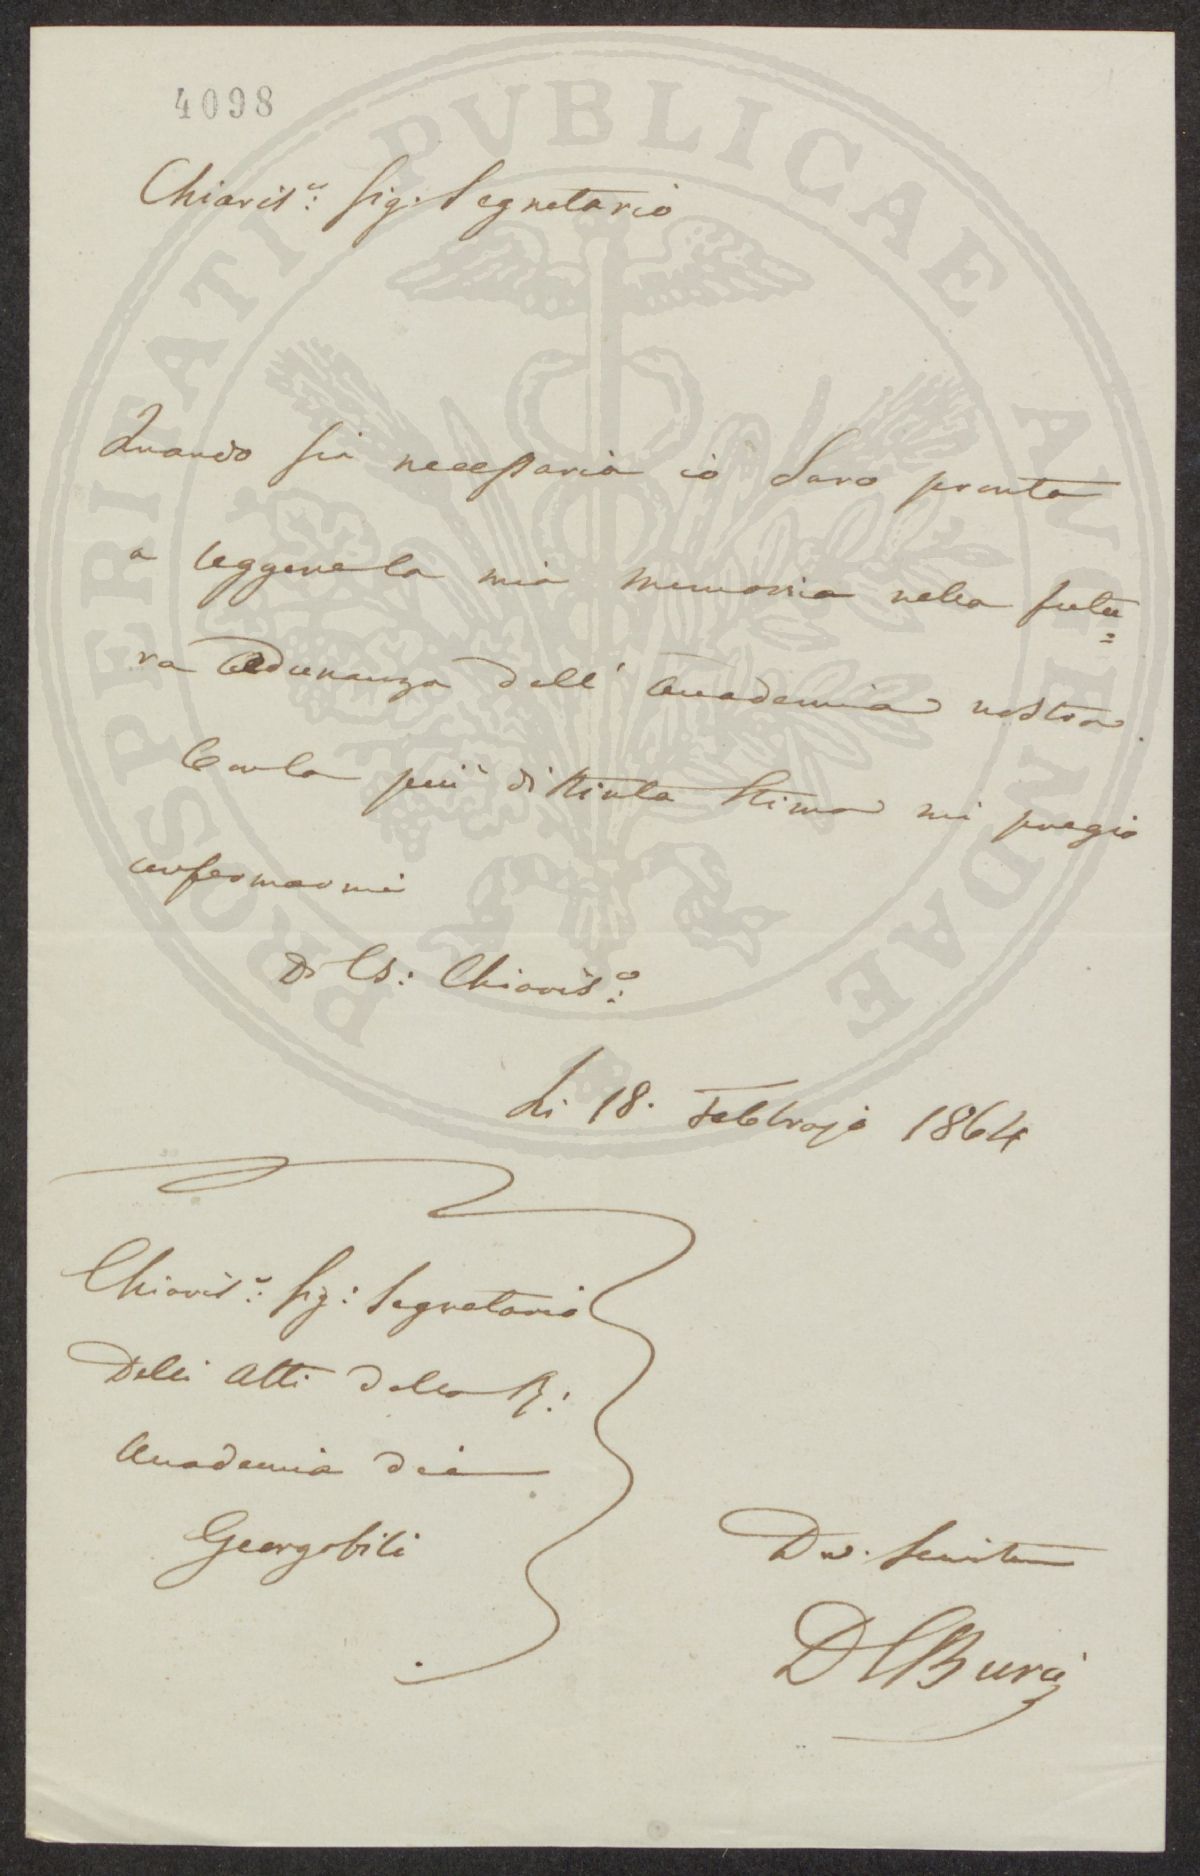 4098
Chiaris.º: Sig: Segretario
Quando sia necessario io Sarò pronto
a leggere la mia memoria nella futu=
ra Adunanza dell' Accademia nostra.
Con la più distinta Stima mi pregio
confermarmi
Di VS: Chiaris.º:
Li 18. Febbrajo 1864
Chiaris.º: Sig: Segretario
Delli Atti della R:
Accademia dei
Georgofili
Dev. Servitore
D C Burci
PROSPERITATI PVBLICAE AVGENDAE